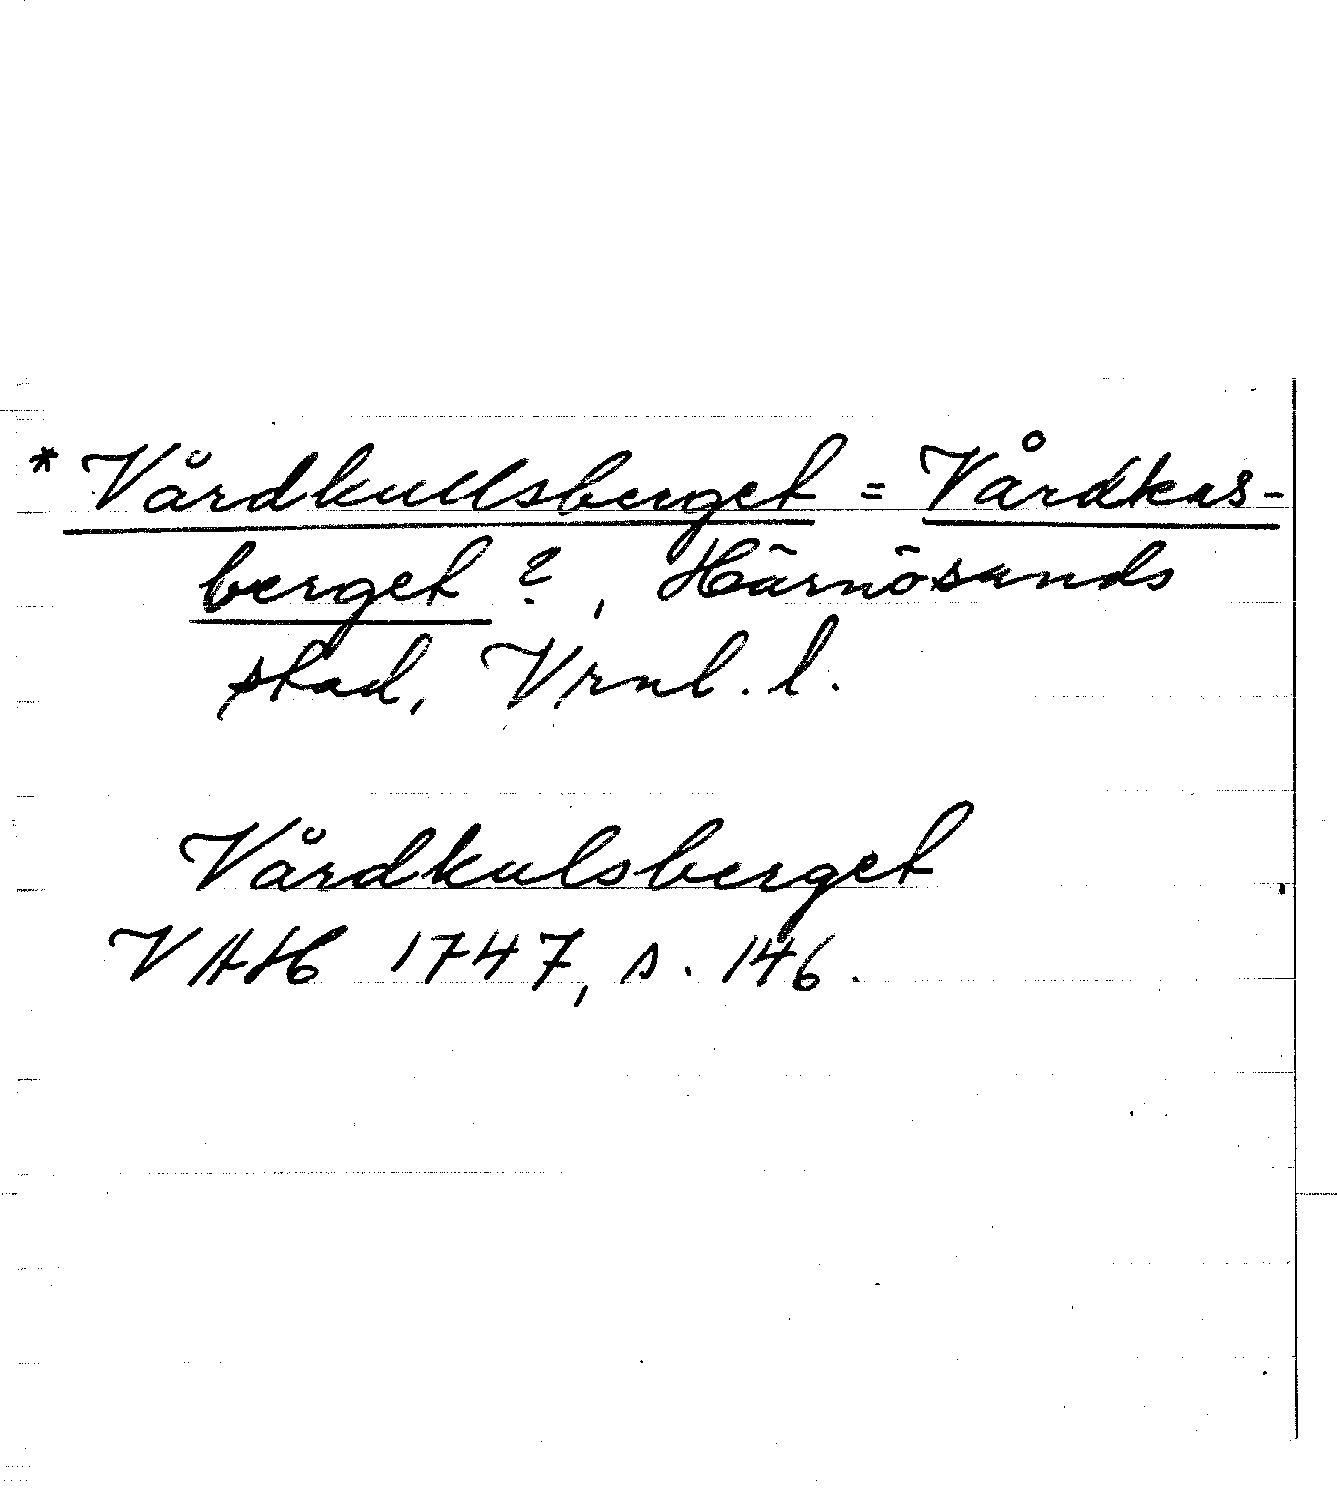 * Vårdkullsberget = Vårdkas-
berget ?, Härnösands
stad, Vrnl. l.
Vårdkulsberget
VAH 1747, s. 146.